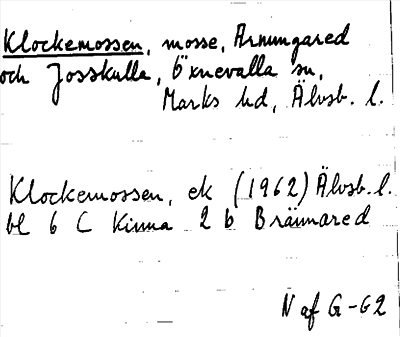 Klockemossen, mosse, Arnungared
och Josskulla, Öxnevalla sn,
Marks hd, Älvsb. l.
Klockemossen, ek (1962) Älvsb. l.
bl 6 C Kinna 2 b Brännared
N af G-62